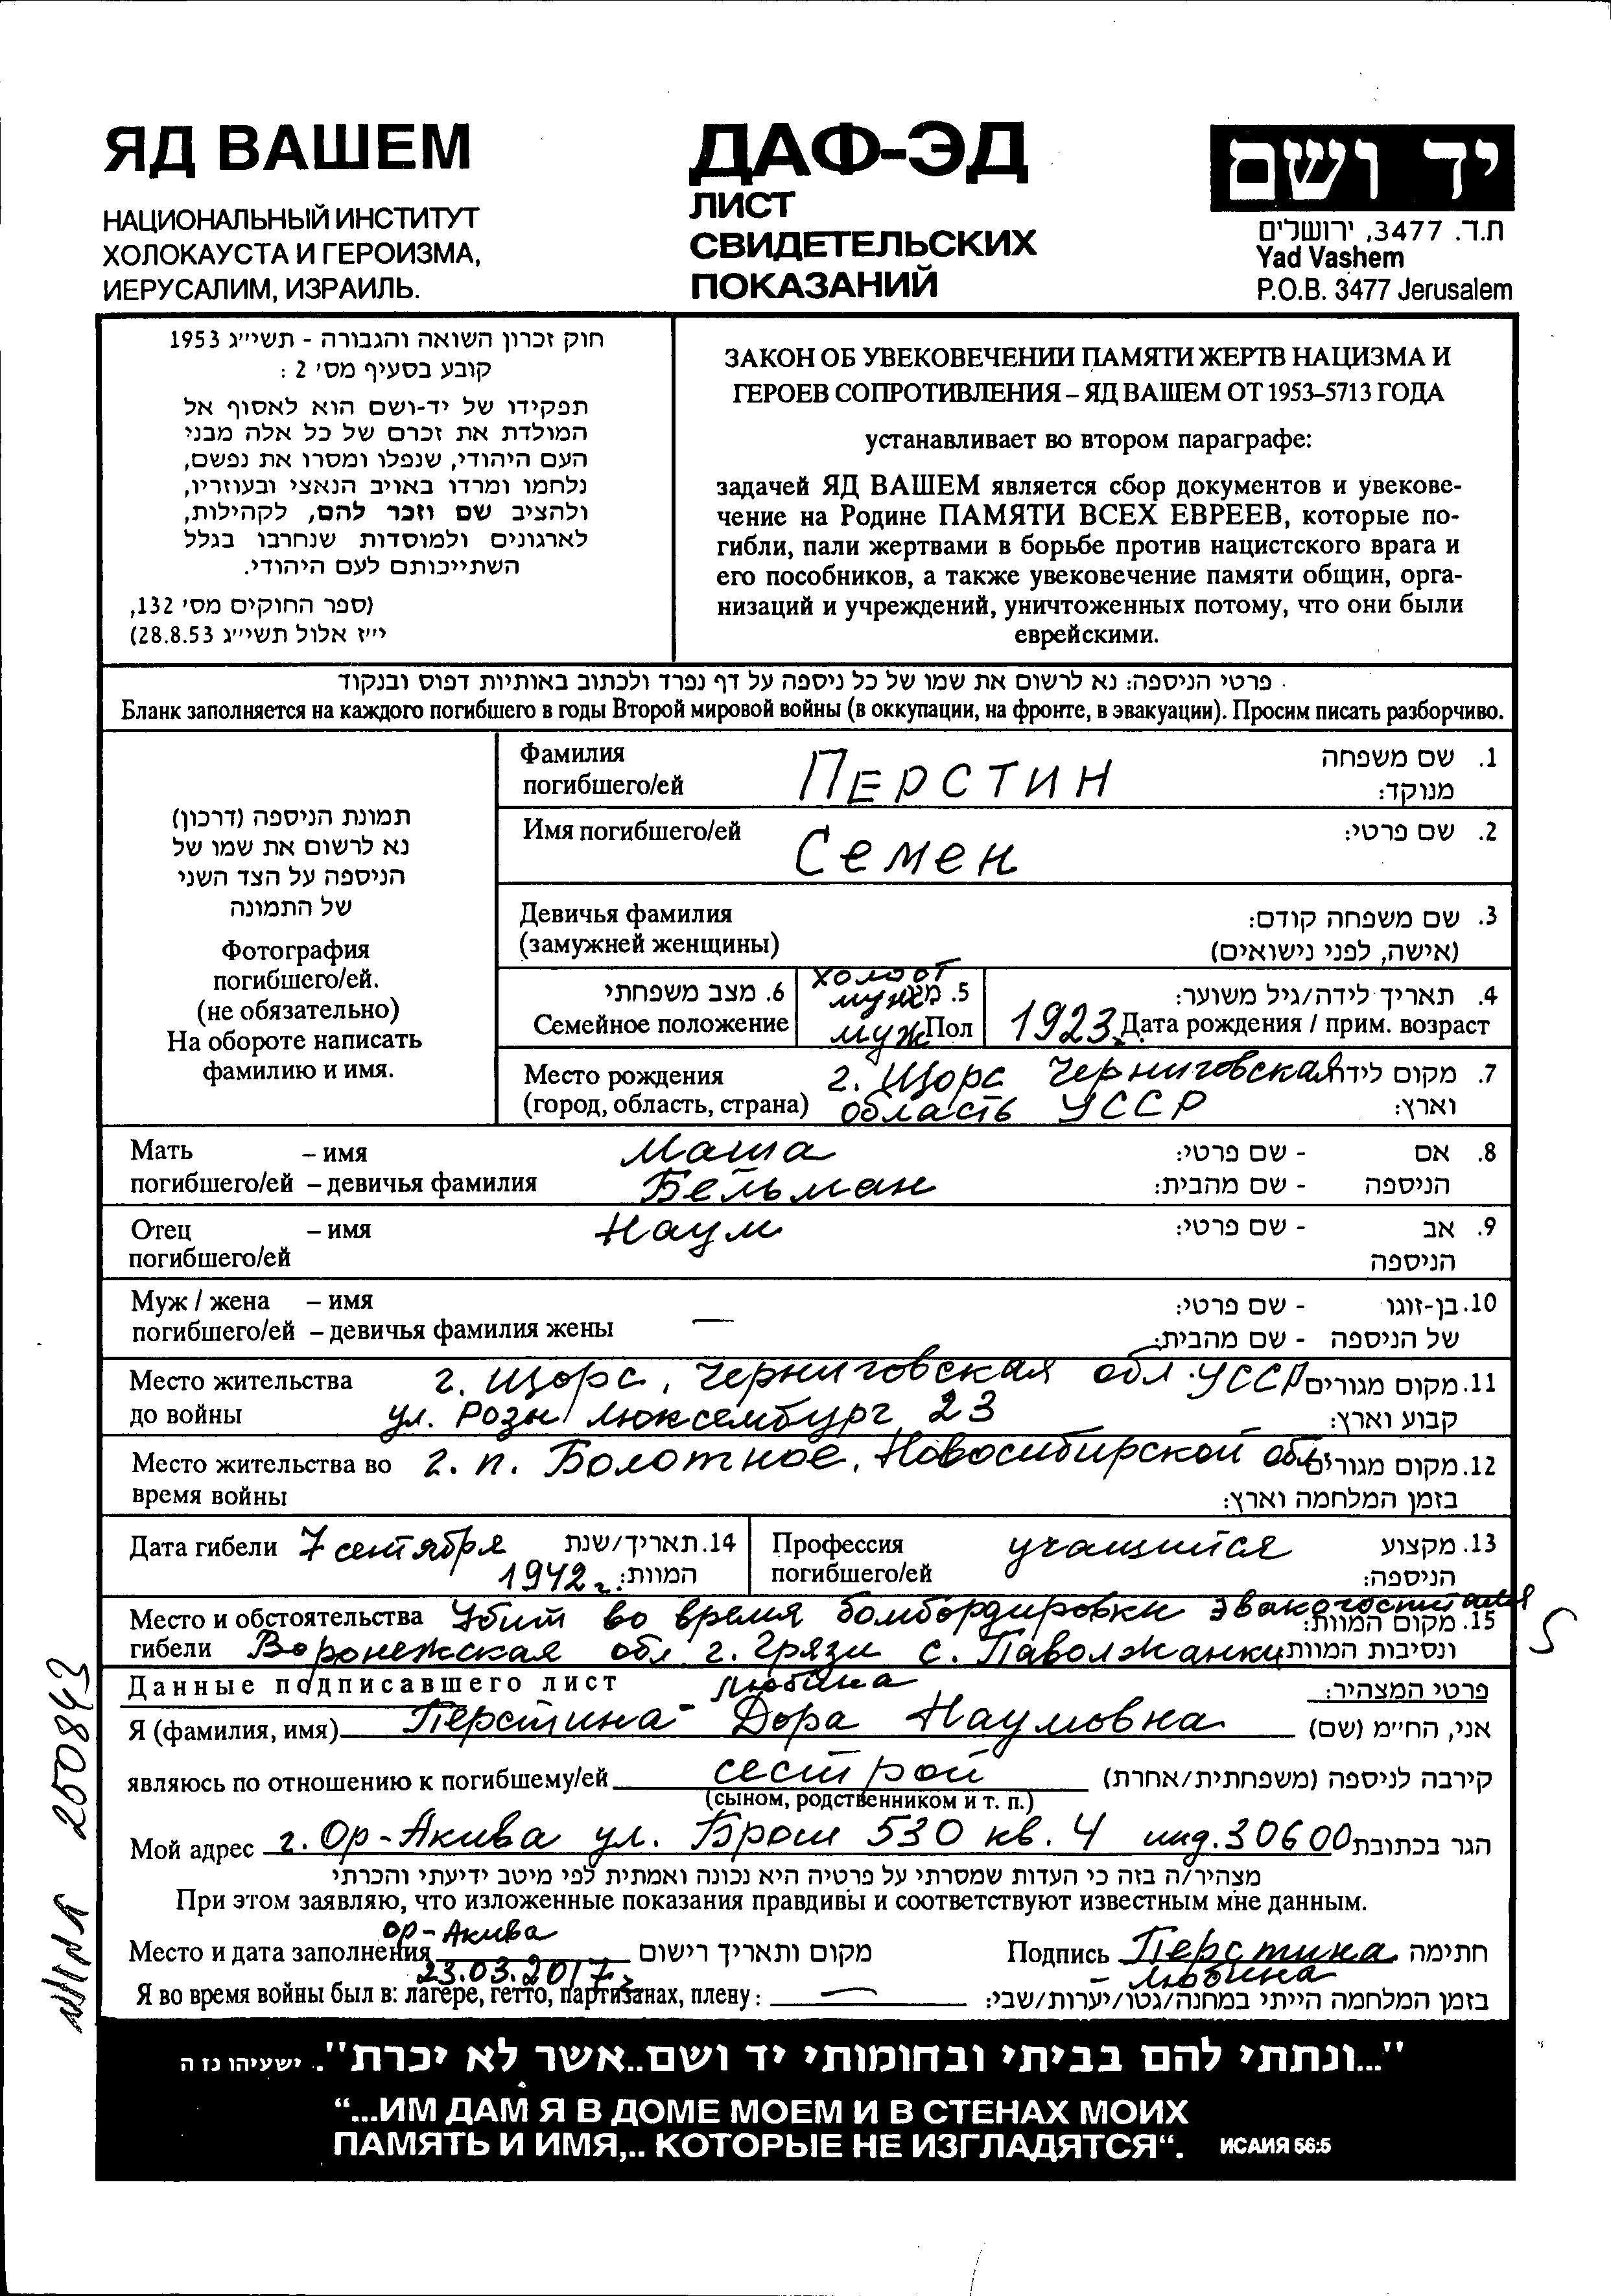 ЯД ВАШЕМ
НАЦИОНАЛЬНЫЙ ИНСТИТУТ
ХОЛОКАУСТА И ГЕРОИЗМА,
ИЕРУСАЛИМ, ИЗРАИЛЬ.
ДАФ-ЭД
ЛИСТ
СВИДЕТЕЛЬСКИХ
ПОКАЗАНИЙ
יד ושם
ת.ד. 3477, ירושלים
Yad Vashem
P.O.B. 3477 Jerusalem
חוק זכרון השואה והגבורה - תשי״ג 1953
קובע בסעיף מס׳ 2 :
תפקידו של יד-ושם הוא לאסוף אל
המולדת את זכרם של כל אלה מבני
העם היהודי, שנפלו ומסרו את נפשם,
נלחמו ומרדו באויב הנאצי ובעוזריו,
ולהציב שם וזכר להם, לקהילות,
לארגונים ולמוסדות שנחרבו בגלל
השתייכותם לעם היהודי.
(ספר החוקים מס׳ 132,
י״ז אלול תשי״ג 28.8.53)
ЗАКОН ОБ УВЕКОВЕЧЕНИИ ПАМЯТИ ЖЕРТВ НАЦИЗМА И
ГЕРОЕВ СОПРОТИВЛЕНИЯ – ЯД ВАШЕМ ОТ 1953–5713 ГОДА
устанавливает во втором параграфе:
задачей ЯД ВАШЕМ является сбор документов и увекове-
чение на Родине ПАМЯТИ ВСЕХ ЕВРЕЕВ, которые по-
гибли, пали жертвами в борьбе против нацистского врага и
его пособников, а также увековечение памяти общин, орга-
низаций и учреждений, уничтоженных потому, что они были
еврейскими.
פרטי הניספה: נא לרשום את שמו של כל ניספה על דף נפרד ולכתוב באותיות דפוס ובנקוד
Бланк заполняется на каждого погибшего в годы Второй мировой войны (в оккупации, на фронте, в эвакуации). Просим писать разборчиво.
תמונת הניספה (דרכון)
נא לרשום את שמו של
הניספה על הצד השני
של התמונה
Фотография
погибшего/ей.
(не обязательно)
На обороте написать
фамилию и имя.
Фамилия
погибшего/ей ПЕРСТИН
1. שם משפחה
מנוקד:
Имя погибшего/ей Семен
2. שם פרטי:
Девичья фамилия
(замужней женщины)
3. שם משפחה קודם:
(אישה, לפני נישואים)
6. מצב משפחתי
Семейное положение
холост
5. מין
муж
муж Пол
4. תאריך לידה/גיל משוער:
1923. Дата рождения / прим. возраст
Место рождения г. Щорс Черниговская
7. מקום לידה
(город, область, страна) область УССР
וארץ:
Мать – имя Маша
8. אם - שם פרטי:
погибшего/ей – девичья фамилия Бельман
הניספה - שם מהבית:
Отец – имя Наум
9. אב - שם פרטי:
погибшего/ей
הניספה
Муж / жена – имя
10. בן-זוגו - שם פרטי:
погибшего/ей – девичья фамилия жены —
של הניספה - שם מהבית:
Место жительства г. Щорс, Черниговская обл. УССР
11. מקום מגורים
до войны ул. Розы Люксембург 23
קבוע וארץ:
Место жительства во г. п. Болотное, Новосибирской обл.
12. מקום מגורים
время войны
בזמן המלחמה וארץ:
Дата гибели 7 сентября
14. תאריך/שנת
1942 г.
המוות:
Профессия учащийся
13. מקצוע
погибшего/ей
הניספה:
Место и обстоятельства Убит во время бомбордировки эвакогоспиталя
15. מקום המוות:
гибели Воронежская обл. г. Грязи с. Паволжанку
ונסיבות המוות
Данные подписавшего лист
פרטי המצהיר:
Любина
Я (фамилия, имя) Перстина- Дора Наумовна
אני, הח״מ (שם)
являюсь по отношению к погибшему/ей сестрой
קירבה לניספה (משפחתית/אחרת)
(сыном, родственником и т. п.)
Мой адрес г. Ор-Акива ул. Брош 530 кв. 4 инд. 30600
הגר בכתובת
מצהיר/ה בזה כי העדות שמסרתי על פרטיה היא נכונה ואמתית לפי מיטב ידיעתי והכרתי
При этом заявляю, что изложенные показания правдивы и соответствуют известным мне данным.
Ор-Акива
Место и дата заполнения
מקום ותאריך רישום
23.03.2017г
Подпись Перстина
חתימה
- Любина
Я во время войны был в: лагере, гетто, партизанах, плену: —
בזמן המלחמה הייתי במחנה/גטו/יערות/שבי:
"...ונתתי להם בביתי ובחומותי יד ושם..אשר לא יכרת". ישעיהו נז ה
“...ИМ ДАМ Я В ДОМЕ МОЕМ И В СТЕНАХ МОИХ
ПАМЯТЬ И ИМЯ,.. КОТОРЫЕ НЕ ИЗГЛАДЯТСЯ“. ИСАИЯ 56:5
250843